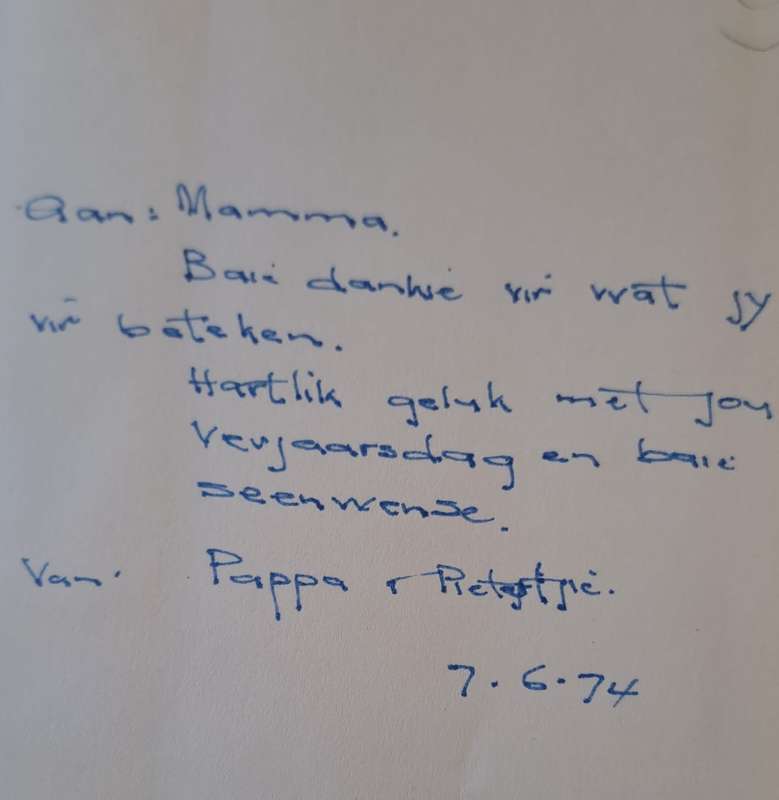 Aan: Mamma.
Baie dankie vir wat jy
vir beteken.
Hartlik geluk met jou
Verjaarsdag en baie
seenwense.
Van: Pappa
7.6.74